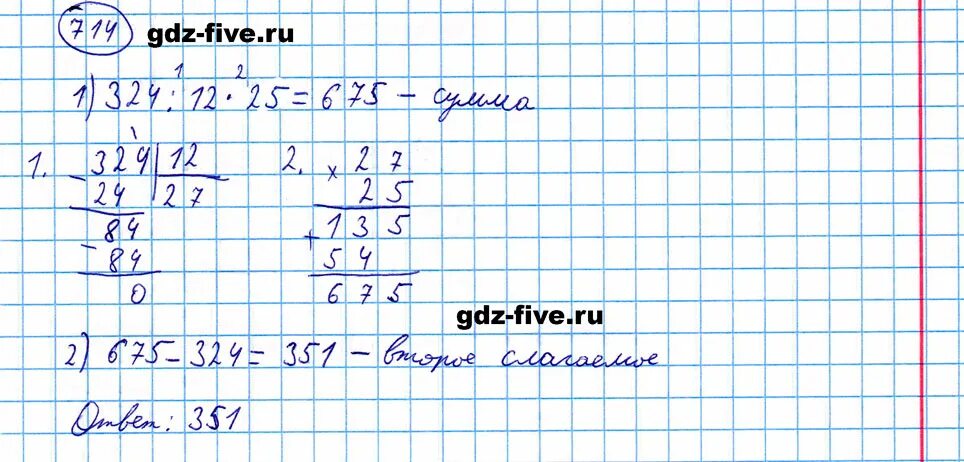 714 gdz-five.ru
1 2
1) 324 : 12 · 25 = 675 – сумма
1. 324 | 12 2. × 27
– 24 27 25
84 + 135
– 84 54
0 675
gdz-five.ru
2) 675 – 324 = 351 – второе слагаемое
Ответ: 351